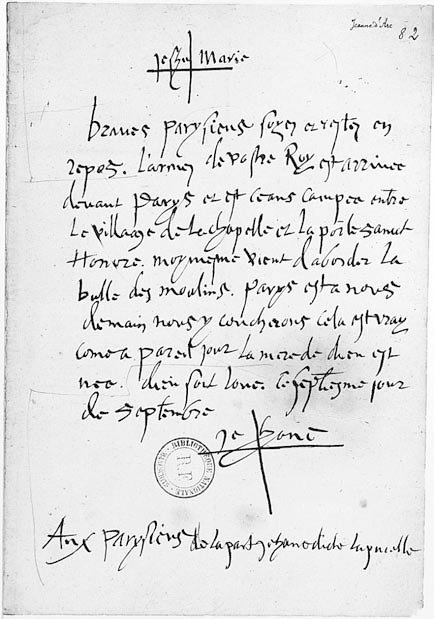 Jeanne d'Arc
82
Jesus Marie
braves parysiens soyez et restez en
repos. L'armee de vostre Roy est arrivee
devant parys et est ceans campee entre
Le village de La chapelle et La porte sainct
Honnre. moymesme vient d'aborder La
butte des moulins. parys est a nous
demain nous y coucherons cela est vray
come a pareil jour La mere de dieu est
nee. dieu soit loue. Ce septiesme jour
de Septembre
BIBLIOTHEQUE NATIONALE
R.F.
Aux parysiens de La part Jehane dicte La pucelle